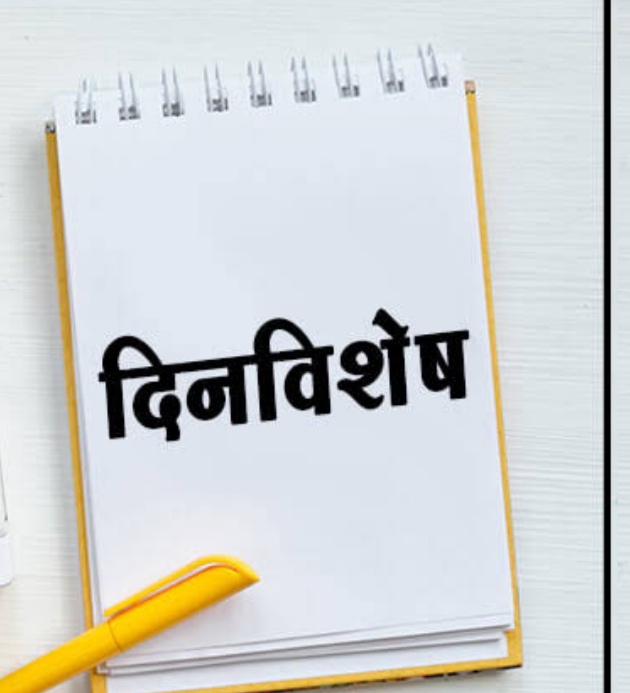 दिनविशेष